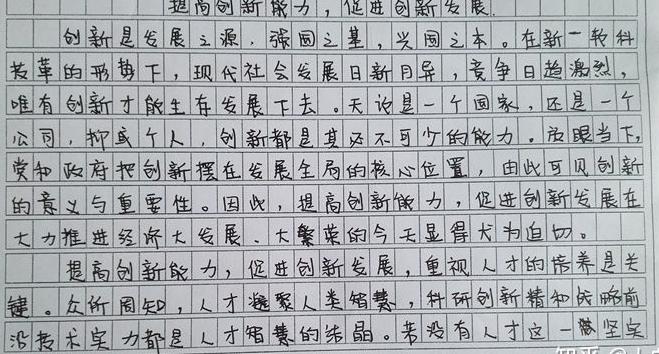 提高创新能力，促进创新发展
创新是发展之源，强国之基，兴国之本。在新一轮科
技革的形势下，现代社会发展日新月异，竞争日趋激烈，
唯有创新才能生存发展下去。无论是一个国家，还是一个
公司，抑或个人，创新都是其必不可少的能力。放眼当下，
党和政府把创新摆在发展全局的核心位置，由此可见创新
的意义与重要性。因此，提高创新能力，促进创新发展在
大力推进经济大发展、大繁荣的今天显得尤为迫切。
提高创新能力，促进创新发展，重视人才的培养是关
键。众所周知，人才凝聚人类智慧，科研创新精和战略前
沿技术实力都是人才智慧的结晶。若没有人才这一坚实
知乎